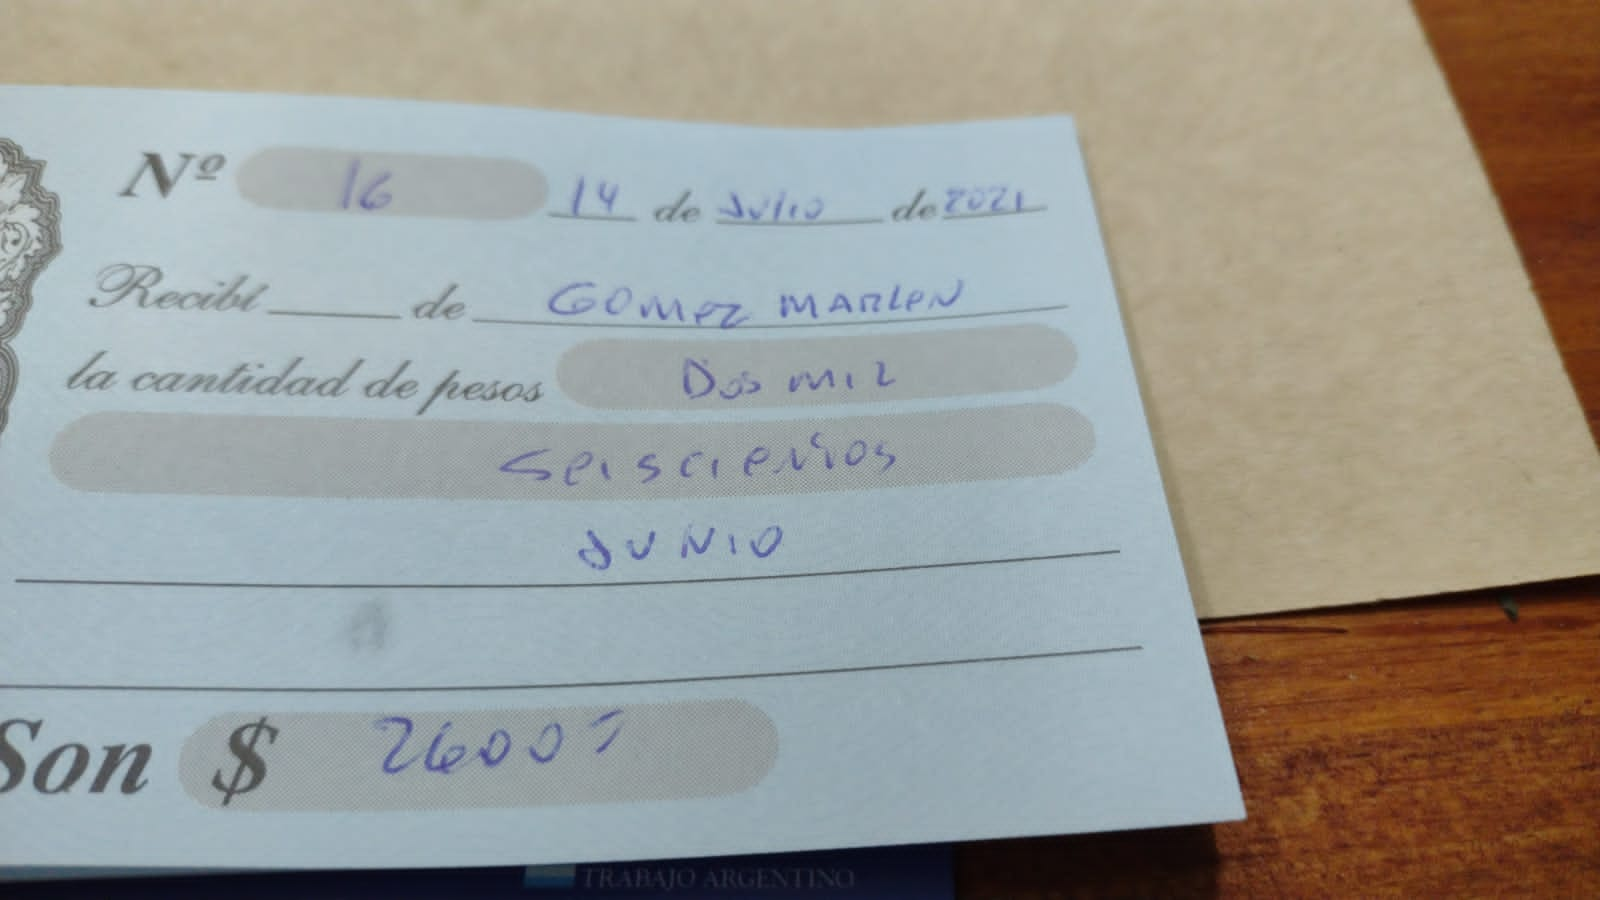 Nº 16 14 de Julio de 2021
Recibí de GOMEZ MARLEN
la cantidad de pesos Dos mil
Seiscientos
JUNIO
Son $ 2600=
TRABAJO ARGENTINO